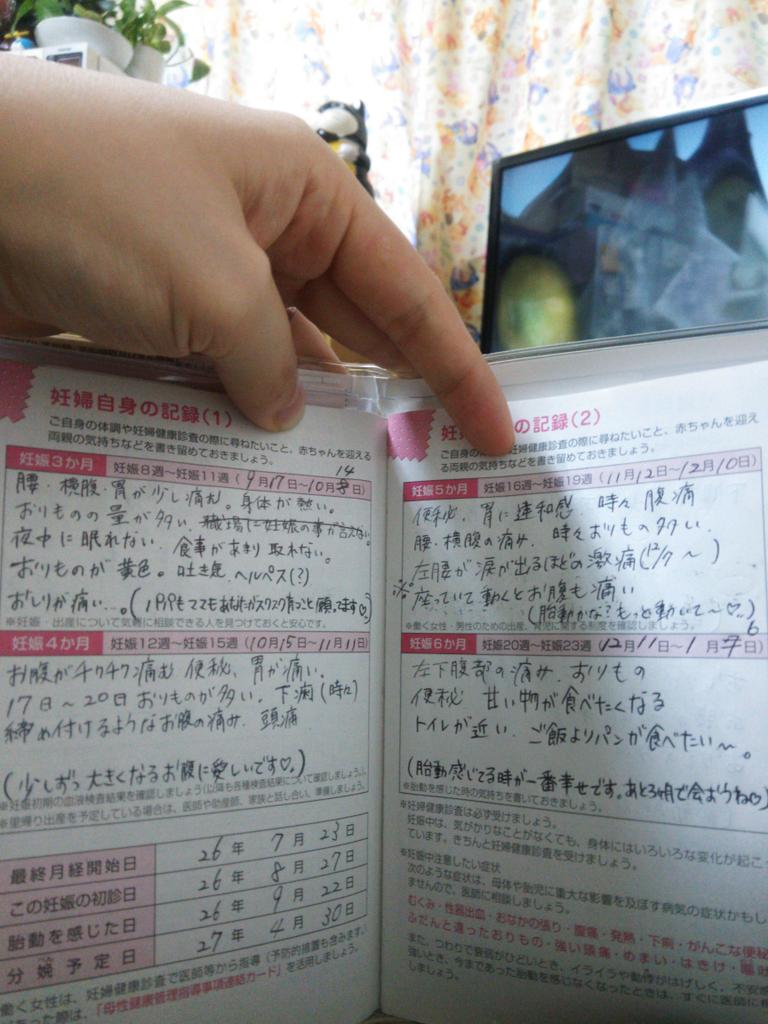 妊婦自身の記録(1)
ご自身の体調や妊婦健康診査の際に尋ねたいこと、赤ちゃんを迎える
両親の気持ちなどを書き留めておきましょう。
妊娠3か月 妊娠8週~妊娠11週(9月17日~10月14日)
腰・横腹・胃が少し痛む。身体が熱い。
おりものの量が多い。職場に妊娠の事が言えない。
夜中に眠れない。食事があまり取れない。
おりものが黄色。吐き気 ヘルペス(?)
おしりが痛い…。(パパもママもあなたがスクスク育つこと願ってます♡)
※妊娠・出産について気軽に相談できる人を見つけておくと安心です。
妊娠4か月 妊娠12週~妊娠15週(10月15日~11月11日)
お腹がチクチク痛む 便秘、胃が痛い。
17日~20日おりものが多い。下痢(時々)
締め付けるようなお腹の痛み 頭痛
(少しずつ大きくなるお腹に愛しいです♡。)
※妊娠初期の血液検査結果を確認しましょう(以降も各種検査結果について確認しましょう)。
※里帰り出産を予定している場合は、医師や助産師、家族と話し合い、準備しましょう。
最終月経開始日 26年 7月 23日
この妊娠の初診日 26年 8月 27日
胎動を感じた日 26年 9月 22日
分娩予定日 27年 4月 30日
働く女性は、妊婦健康診査で医師等から指導(予防的措置も含みます。)
あった際は、「母性健康管理指導事項連絡カード」を活用しましょう。
妊 の記録(2)
ご自身の 妊婦健康診査の際に尋ねたいこと、赤ちゃんを迎え
る両親の気持ちなどを書き留めておきましょう。
妊娠5か月 妊娠16週~妊娠19週(11月12日~12月10日)
便秘。胃に違和感 時々腹痛
腰・横腹の痛み。時々おりもの多い。
左腰が涙が出るほどの激痛(12/7~)
※座っていて動くとお腹も痛い
(胎動かな?もっと動いて~♡。)
※働く女性・男性のための出産、育児に関する制度を確認しましょう。
妊娠6か月 妊娠20週~妊娠23週(12月11日~1月6日)
左下腹部の痛み。おりもの
便秘 甘い物が食べたくなる
トイレが近い。ご飯よりパンが食べたい~。
(胎動感じてる時が一番幸せです。あと3ヶ月で会おうね♡)
※胎動を感じた時の気持ちを書いておきましょう。
※妊婦健康診査は必ず受けましょう。
妊娠中は、気がかりなことがなくても、身体にはいろいろな変化が起こっ
ています。きちんと妊婦健康診査を受けましょう。
※妊娠中注意したい症状
次のような症状は、母体や胎児に重大な影響を及ぼす病気の症状かもし
ませんので、医師に相談しましょう。
むくみ・性器出血・おなかの張り・腹痛・発熱・下痢・がんこな便秘
ふだんと違ったおりもの・強い頭痛・めまい・はきけ・嘔吐
また、つわりで衰弱がひどいとき、イライラや動悸がはげしく、不安感
強いとき、今まであった胎動を感じなくなったときは、すぐに医師に
しましょう。